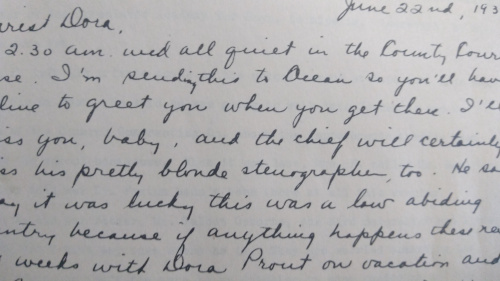 June 22nd, 193
arest Dora,
2.30 a.m. and all quiet in the County Cour
se. I'm sending this to Ocean so you'll hav
line to greet you when you get there. I'll
iss you, baby, and the chief will certainly
iss his pretty blonde stenographer, too. He sa
ay it was lucky this was a law abiding
ntry because if anything happens these ne
weeks with Dora Prout on vacation and